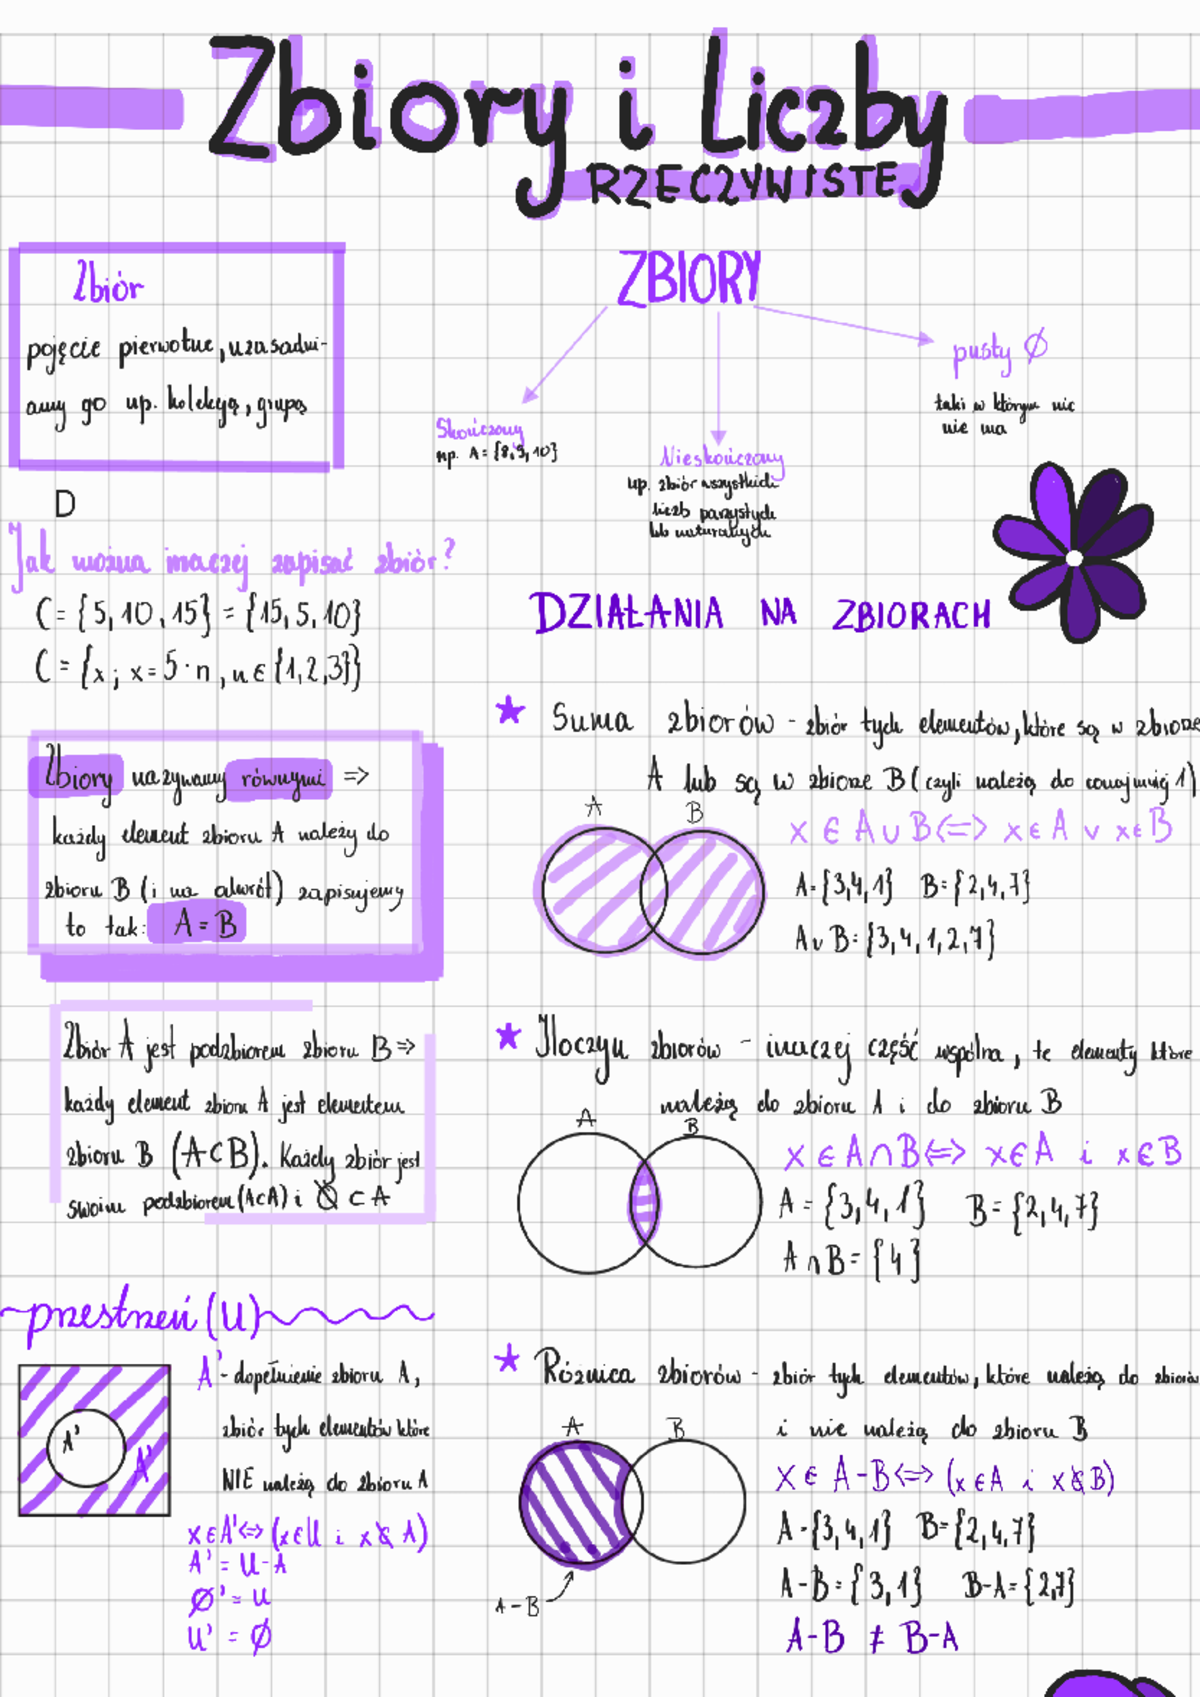 Zbiory i Liczby
RZECZYWISTE
Zbiór
pojęcie pierwotne, uzasadni-
amy go np. kolekcją, grupą
ZBIORY
Skończony
np. A = {8,9,10}
Nieskończony
np. zbiór wszystkich
liczb parzystych
lub naturalnych
pusty Ø
taki w którym nic
nie ma
D
Jak można inaczej zapisać zbiór?
C = {5, 10, 15} = {15, 5, 10}
C = {x; x = 5 · n, n ∈ {1,2,3}}
Zbiory nazywamy równymi =>
każdy element zbioru A należy do
zbioru B (i na odwrót) zapisujemy
to tak: A = B
Zbiór A jest podzbiorem zbioru B =>
każdy element zbioru A jest elementem
zbioru B (A⊂B). Każdy zbiór jest
swoim podzbiorem (A⊂A) i Ø ⊂ A
przestrzeń (U)
A'
A'
A' - dopełnienie zbioru A,
zbiór tych elementów które
NIE należą do zbioru A
x ∈ A' <=> (x ∈ U i x ∉ A)
A' = U - A
Ø' = U
U' = Ø
DZIAŁANIA NA ZBIORACH
Suma zbiorów - zbiór tych elementów, które są w zbiorze
A lub są w zbiorze B (czyli należą do conajmniej 1)
A B
x ∈ A ∪ B <=> x ∈ A ∨ x ∈ B
A = {3,4,1} B = {2,4,7}
A ∪ B = {3,4,1,2,7}
Iloczyn zbiorów - inaczej część wspólna, te elementy które
należą do zbioru A i do zbioru B
A B
x ∈ A ∩ B <=> x ∈ A i x ∈ B
A = {3,4,1} B = {2,4,7}
A ∩ B = {4}
Różnica zbiorów - zbiór tych elementów, które należą do zbioru
i nie należą do zbioru B
A B
x ∈ A - B <=> (x ∈ A i x ∉ B)
A - {3,4,1} B = {2,4,7}
A - B = {3,1} B - A = {2,7}
A - B
A - B ≠ B - A